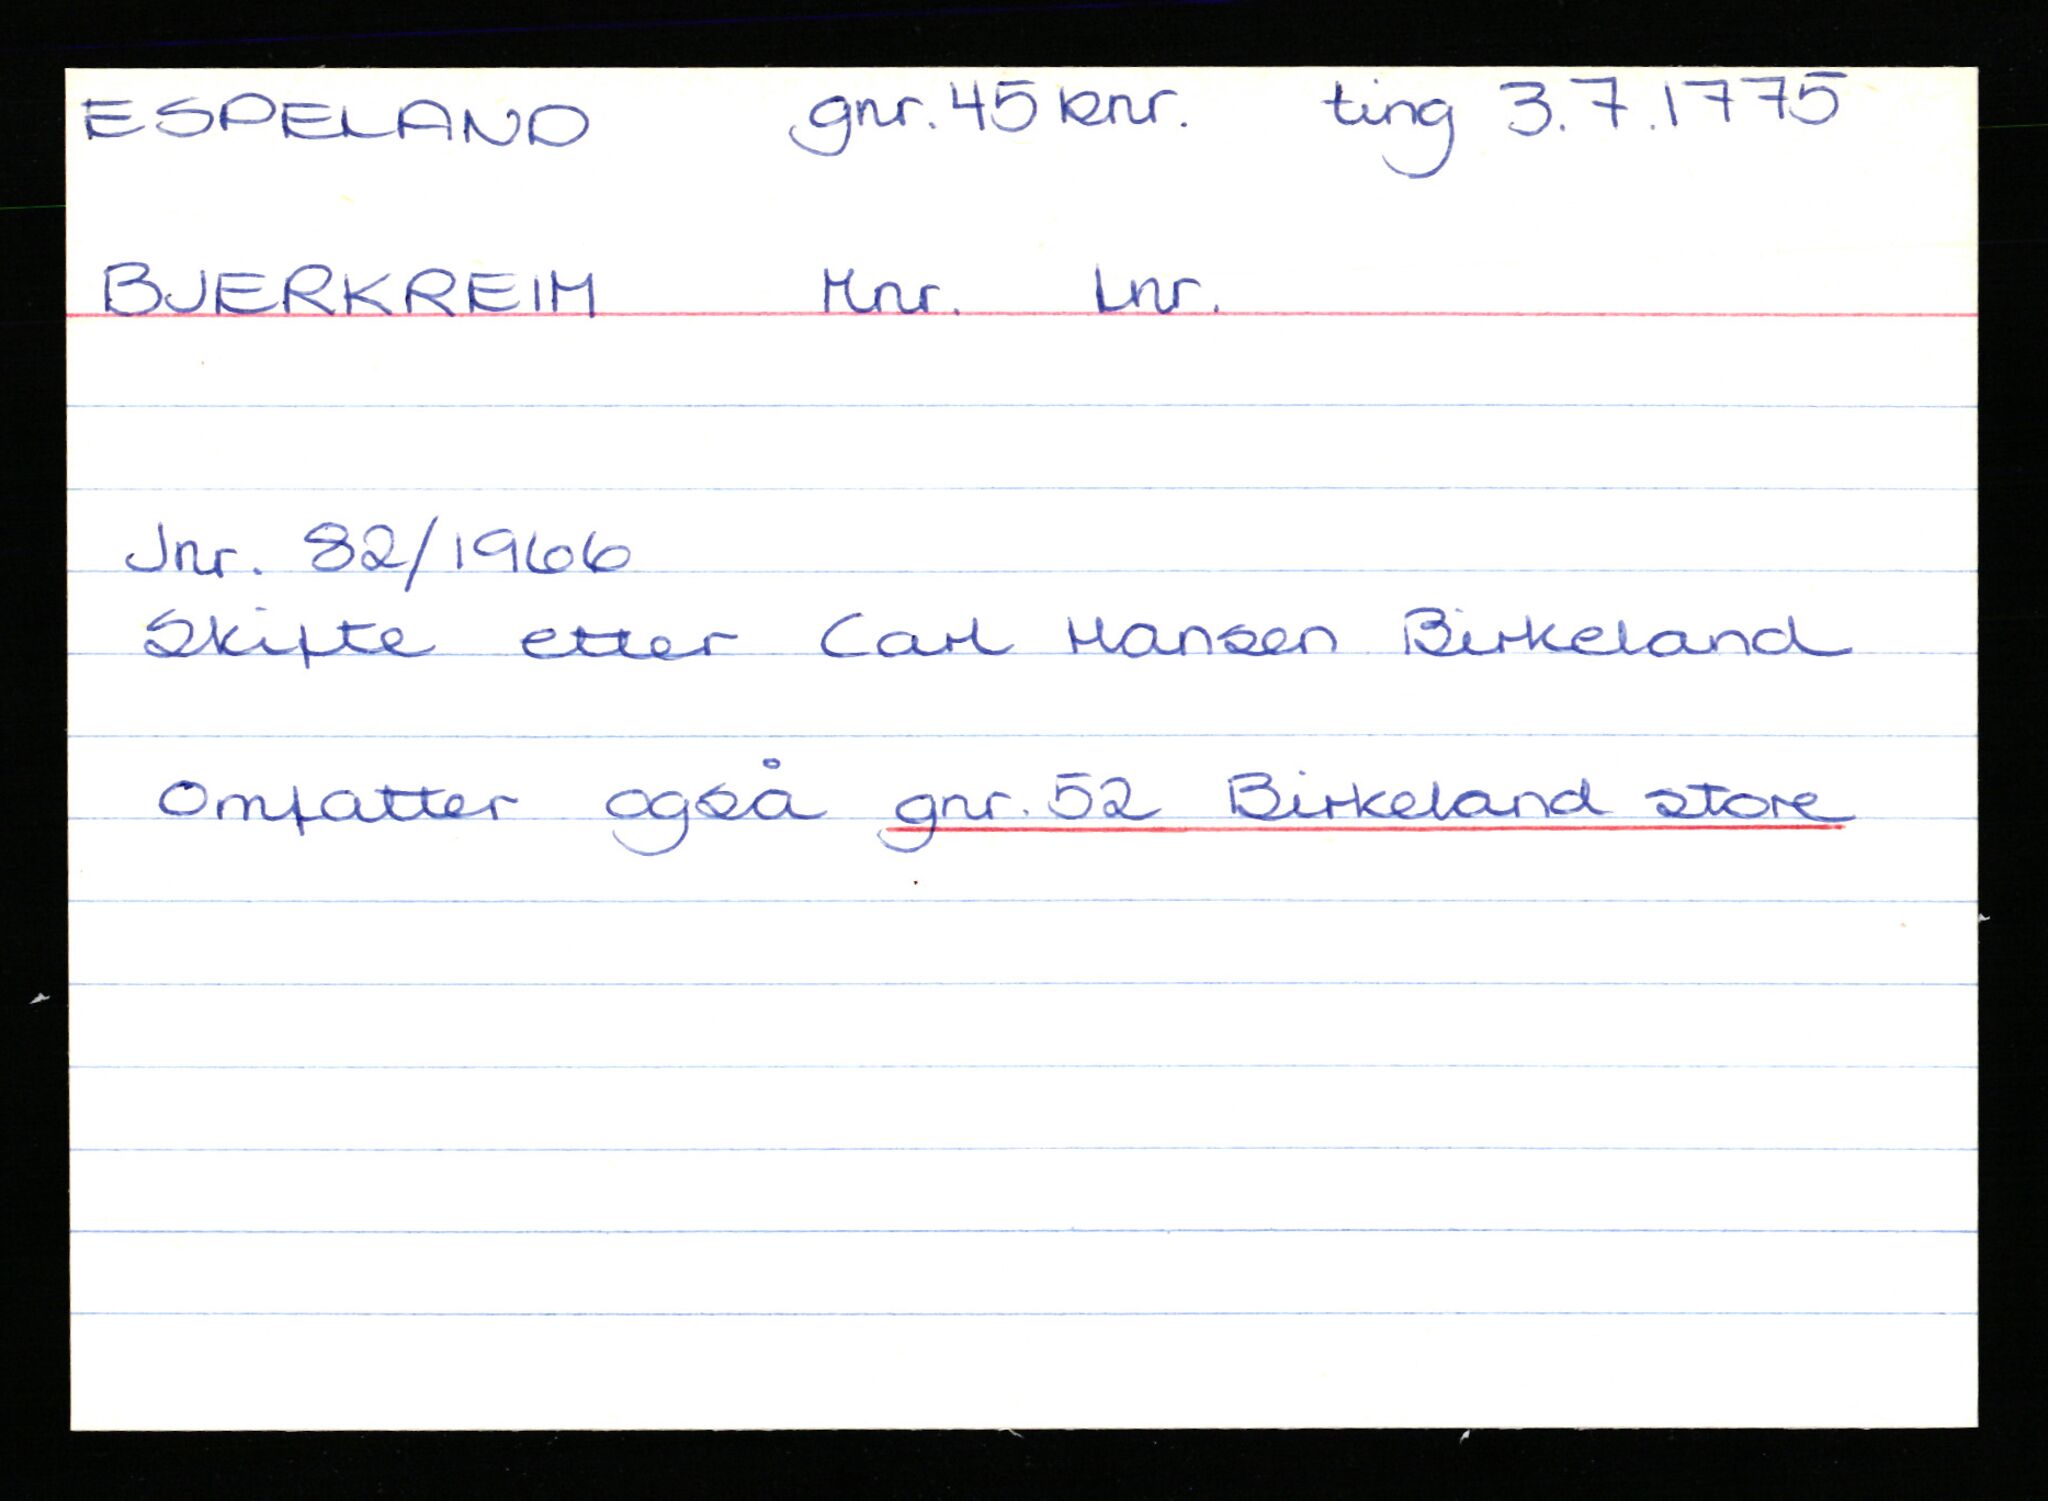 ESPELAND gnr. 45 bnr. ting 3.7.1775
BJERKREIM Mnr. Lnr.
Jnr. 82/1966
Skifte etter Carl Hansen Birkeland
Omfatter også gnr. 52 Birkeland store